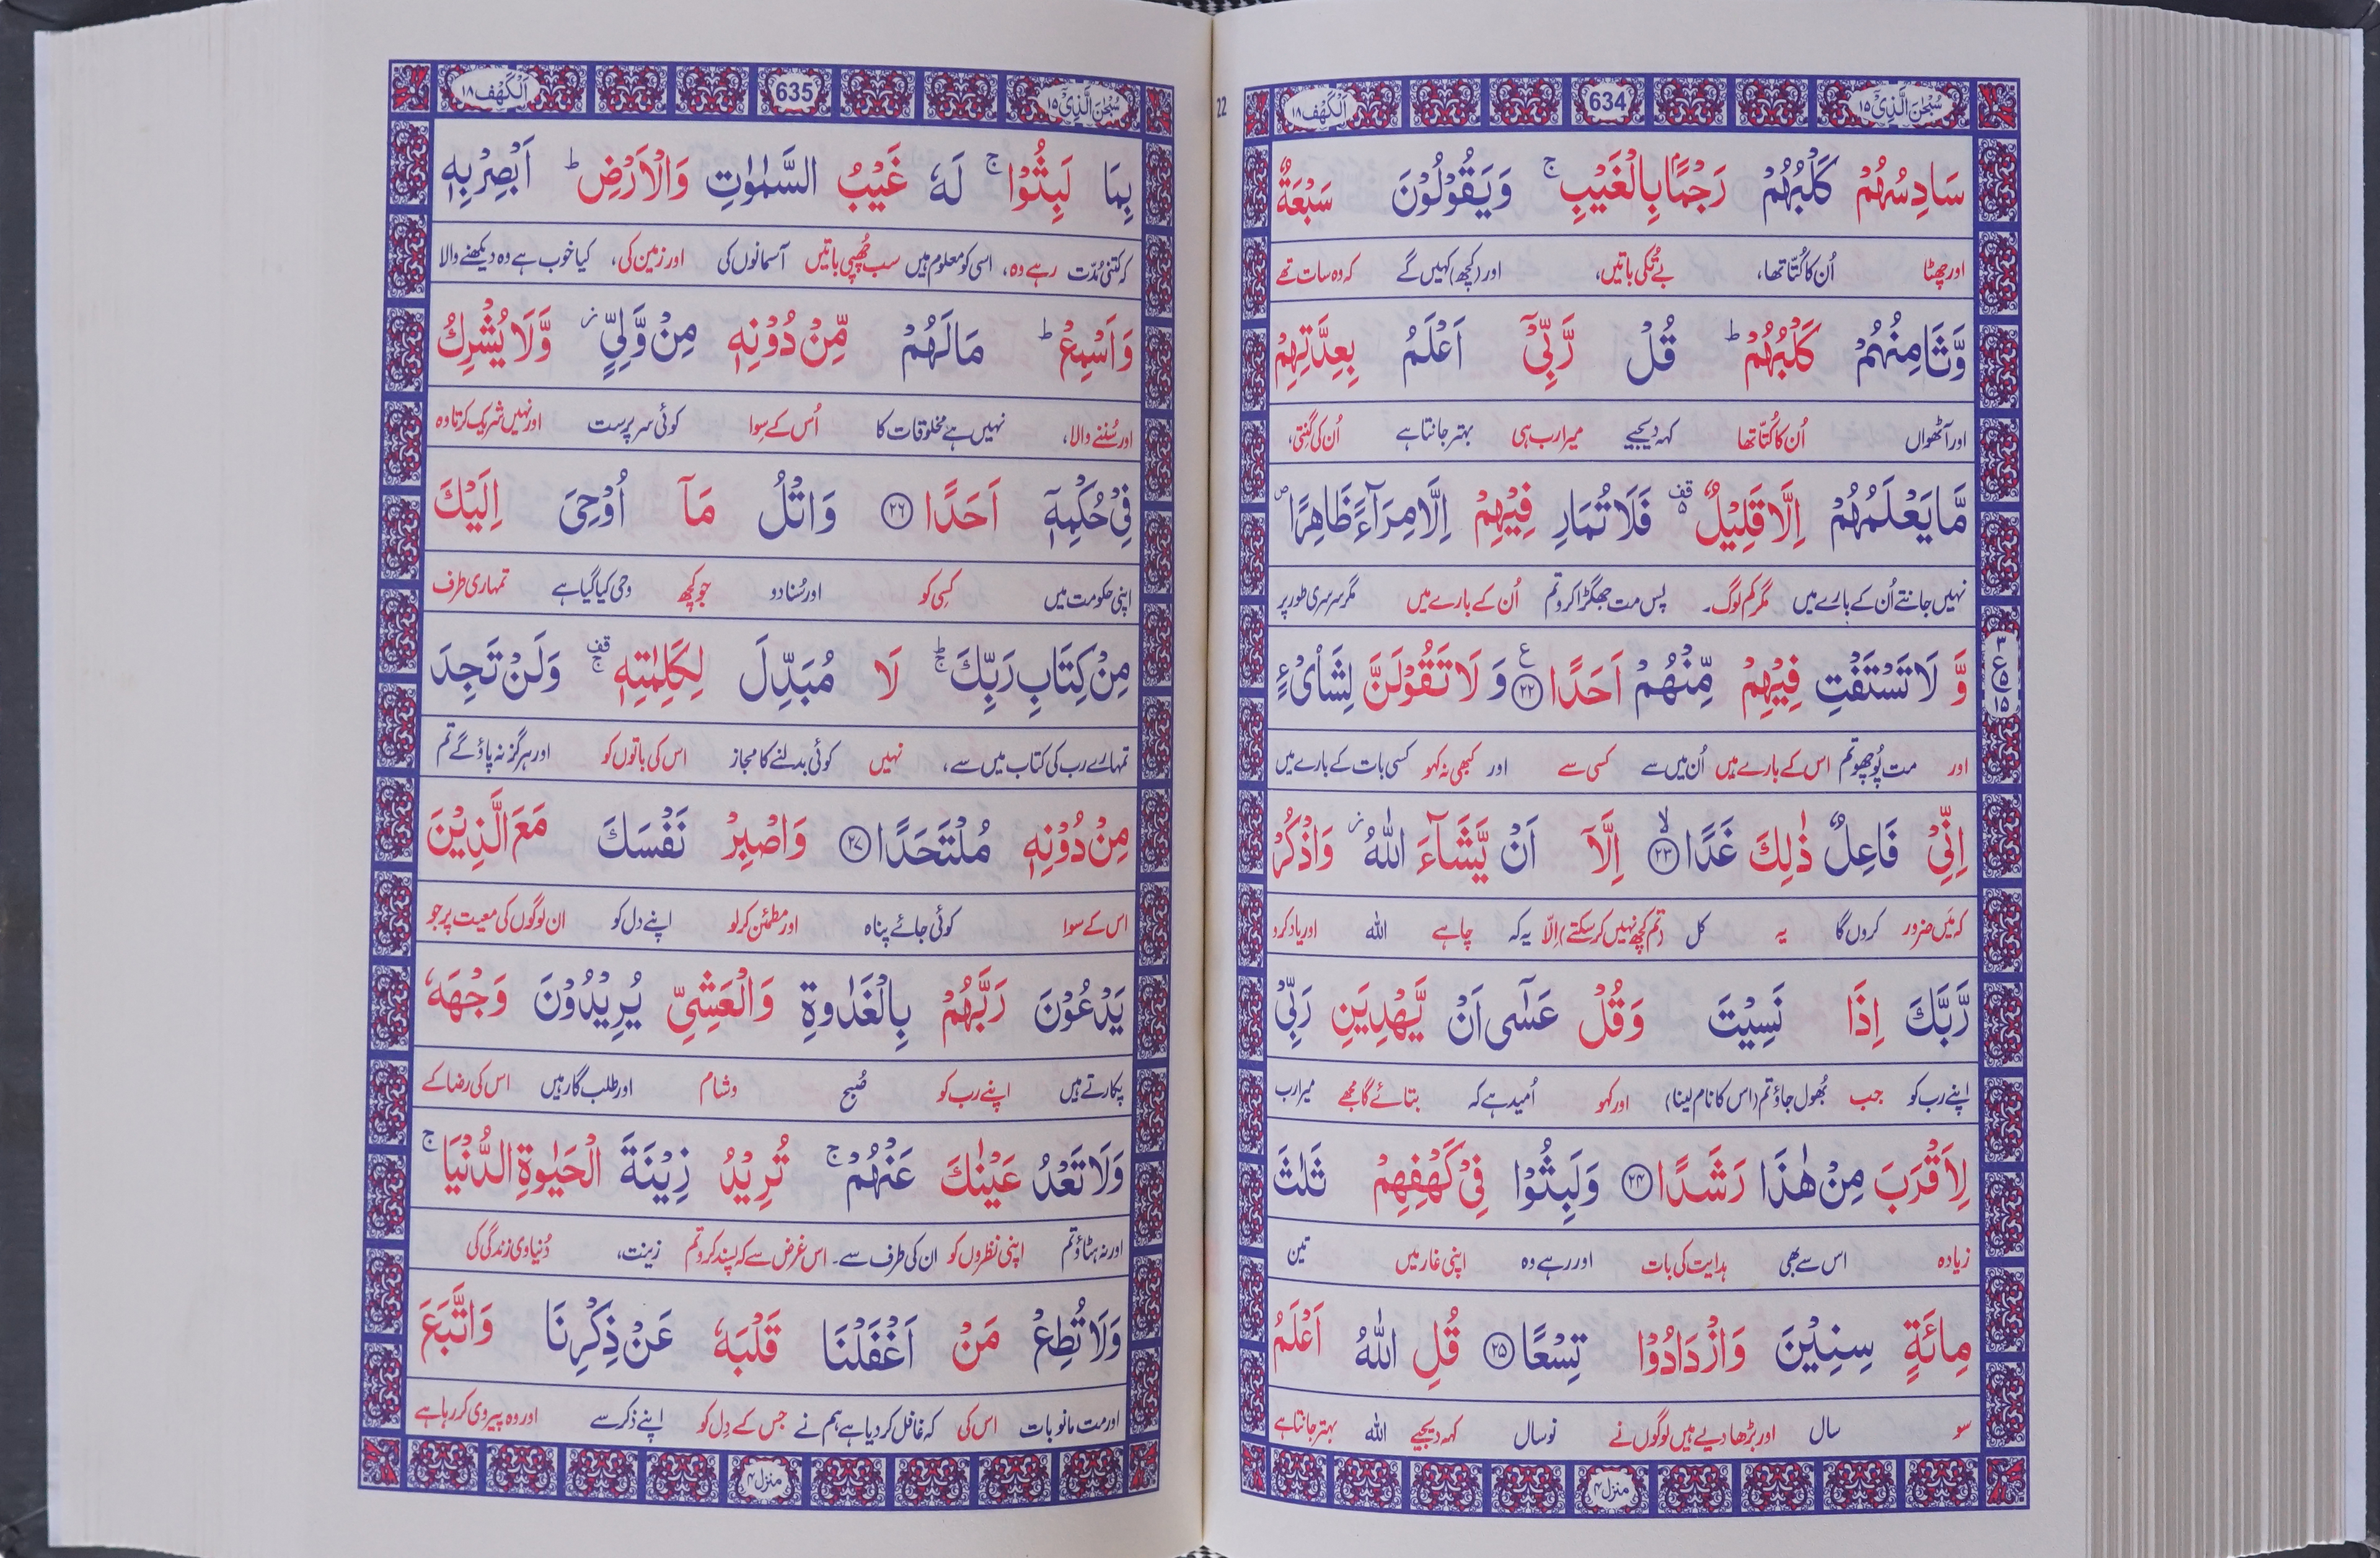 سُبْحٰنَ الَّذِیْۤ ١٥ 634 اَلْكَهْف ١٨
سَادِسُهُمْ كَلْبُهُمْ رَجْمًۢا بِالْغَیْبِ ۚ وَیَقُوْلُوْنَ سَبْعَةٌ
اور چھٹا اُن کا کُتّا تھا، بے تُکی باتیں، اور (کچھ) کہیں گے کہ وہ سات تھے
وَّثَامِنُهُمْ كَلْبُهُمْ ؕ قُلْ رَّبِّیْۤ اَعْلَمُ بِعِدَّتِهِمْ
اور آٹھواں اُن کا کُتّا تھا کہہ دیجیے میرا رب ہی بہتر جانتا ہے اُن کی گنتی،
مَّا یَعْلَمُهُمْ اِلَّا قَلِیْلٌ ۫۬ فَلَا تُمَارِ فِیْهِمْ اِلَّا مِرَآءً ظَاهِرًا ۪
نہیں جانتے اُن کے بارے میں مگر کم لوگ۔ پس مت جھگڑا کرو تم اُن کے بارے میں مگر سرسری طور پر
وَّ لَا تَسْتَفْتِ فِیْهِمْ مِّنْهُمْ اَحَدًا ۠ ﴿۲۲﴾ وَ لَا تَقُوْلَنَّ لِشَایْءٍ
٣ ع ۵ ١۵
اور مت پُوچھو تم اس کے بارے میں اُن میں سے کسی سے اور کبھی نہ کہو کسی بات کے بارے میں
اِنِّیْ فَاعِلٌ ذٰلِكَ غَدًا ۙ ﴿۲۳﴾ اِلَّاۤ اَنْ یَّشَآءَ اللّٰهُ ؗ وَاذْكُرْ
کہ مَیں ضرور کروں گا یہ کل (تم کچھ نہیں کر سکتے) اِلّا یہ کہ چاہے اللہ اور یاد کرو
رَّبَّكَ اِذَا نَسِیْتَ وَقُلْ عَسٰۤی اَنْ یَّهْدِیَنِ رَبِّیْ
اپنے رب کو جب بُھول جاؤ تم (اس کا نام لینا) اور کہو اُمید ہے کہ بتائے گا مجھے میرا رب
لِاَقْرَبَ مِنْ هٰذَا رَشَدًا ﴿۲۴﴾ وَلَبِثُوْا فِیْ كَهْفِهِمْ ثَلٰثَ
زیادہ اس سے بھی ہدایت کی بات اور رہے وہ اپنی غار میں تین
مِائَةٍ سِنِیْنَ وَازْدَادُوْا تِسْعًا ﴿۲۵﴾ قُلِ اللّٰهُ اَعْلَمُ
سو سال اور بڑھا دیے ہیں لوگوں نے نو سال کہہ دیجیے اللہ بہتر جانتا ہے
منزل ۴
22
سُبْحٰنَ الَّذِیْۤ ١٥ 635 اَلْكَهْف ١٨
بِمَا لَبِثُوْا ۚ لَهٗ غَیْبُ السَّمٰوٰتِ وَالْاَرْضِ ؕ اَبْصِرْ بِهٖ
کہ کتنی مُدّت رہے وہ، اسی کو معلوم ہیں سب چُھپی باتیں آسمانوں کی اور زمین کی، کیا خوب ہے وہ دیکھنے والا
وَاَسْمِعْ ؕ مَا لَهُمْ مِّنْ دُوْنِهٖ مِنْ وَّلِیٍّ ؗ وَّلَا یُشْرِكُ
اور سُننے والا، نہیں ہے مخلوقات کا اُس کے سِوا کوئی سرپرست اور نہیں شریک کرتا وہ
فِیْ حُكْمِهٖۤ اَحَدًا ﴿۲۶﴾ وَاتْلُ مَاۤ اُوْحِیَ اِلَیْكَ
اپنی حکومت میں کِسی کو اور سُنا دو جو کچھ وحی کیا گیا ہے تمہاری طرف
مِنْ كِتَابِ رَبِّكَ ؕۚ لَا مُبَدِّلَ لِكَلِمٰتِهٖ ۚ۫ وَلَنْ تَجِدَ
تمہارے رب کی کتاب میں سے، نہیں کوئی بدلنے کا مجاز اس کی باتوں کو اور ہرگز نہ پاؤ گے تم
مِنْ دُوْنِهٖ مُلْتَحَدًا ﴿۲۷﴾ وَاصْبِرْ نَفْسَكَ مَعَ الَّذِیْنَ
اس کے سوا کوئی جائے پناہ اور مطمئن کر لو اپنے دل کو ان لوگوں کی معیت پر جو
یَدْعُوْنَ رَبَّهُمْ بِالْغَدٰوةِ وَالْعَشِیِّ یُرِیْدُوْنَ وَجْهَهٗ
پکارتے ہیں اپنے رب کو صُبح و شام اور طلب گار ہیں اس کی رضا کے
وَلَا تَعْدُ عَیْنٰكَ عَنْهُمْ ۚ تُرِیْدُ زِیْنَةَ الْحَیٰوةِ الدُّنْیَا ۚ
اور نہ ہٹاؤ تم اپنی نظروں کو ان کی طرف سے۔ اس غرض سے کہ پسند کرو تم زینت، دُنیاوی زندگی کی
وَلَا تُطِعْ مَنْ اَغْفَلْنَا قَلْبَهٗ عَنْ ذِكْرِنَا وَاتَّبَعَ
اور مت مانو بات اس کی کہ غافل کر دیا ہے ہم نے جس کے دِل کو اپنے ذکر سے اور وہ پیروی کر رہا ہے
منزل ۴